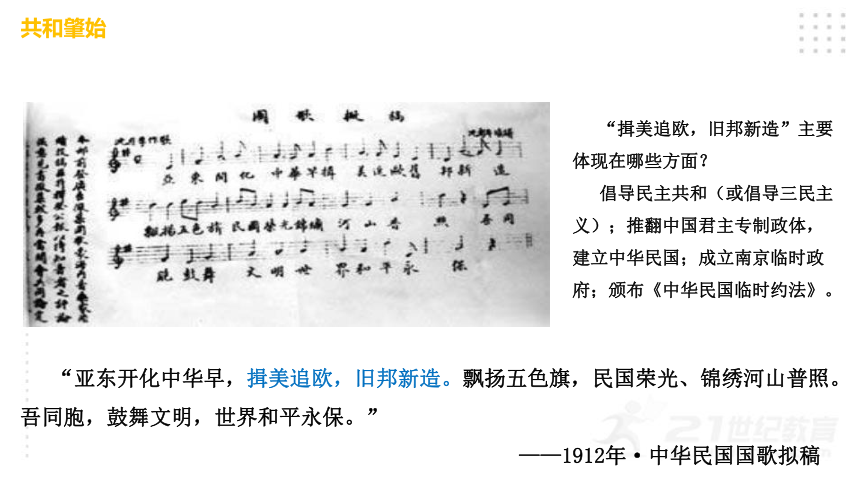 共和肇始
國歌擬稿
沈彭年作歌
亞東開化中華早揖美追歐舊邦新造
飄揚五色旗民國榮光錦繡河山普照吾同
胞鼓舞文明世界和平永保
“揖美追欧，旧邦新造”主要
体现在哪些方面？
倡导民主共和（或倡导三民主
义）；推翻中国君主专制政体，
建立中华民国；成立南京临时政
府；颁布《中华民国临时约法》。
“亚东开化中华早，揖美追欧，旧邦新造。飘扬五色旗，民国荣光、锦绣河山普照。
吾同胞，鼓舞文明，世界和平永保。”
——1912年·中华民国国歌拟稿
21世纪教育